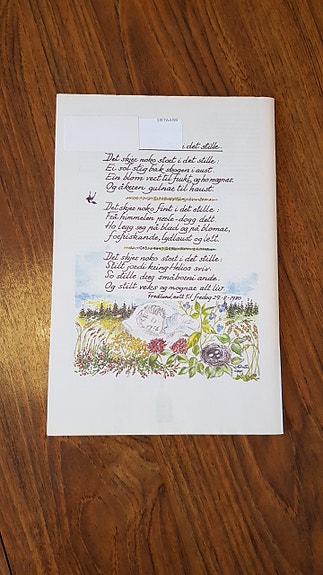 i det stille
Det skjer noko stort i det stille:
Ei sol stig bak skogen i aust.
Ein blom vert til frukt, og ho mognar.
Og åkeren gulnar til haust.
Det skjer noko fint i det stille:
Frå himmelen perle-dogg dett.
Ho legg seg på blad og på blomar,
forfriskande, lydlaust og lett.
Det skjer noko stort i det stille:
Stilt jordi kring Helios sviv.
So stille dreg småborni ande.
Og stilt veks og mognar alt liv.
natt til fredag 29-8-1980